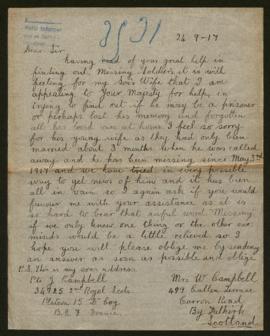 3531
26 9-17
Dear Sir
having read of your great help in
finding out Missing Soldiers it is with
for my Sons Wife that I am
appealing to Your Majesty for help, in
trying to find out if he may be a prisoner
or perhaps lost his memory and forgotten
all his loved one at home I feel so sorry
for his young wife as they had only been
married about 3 months when he was called
away and he has been missing since May 3rd
1917 and we have tried in every possible
way to get news of him and it has been
all in vain so I again ask if you would
favour me with your assistance as it is
so hard to bear that awful word Missing
if we only knew one thing or the other our
minds would be a little relieved so I
hope you will please oblige me by sending
an answer as soon as possible and oblige
P.S. This is my sons address
Mrs W Campbell
Pte J Campbell
34785 2nd Royal Scots
Platoon 15 D Coy
B.E.F France
Terrace
Carron Road
By Falkirk
Scotland